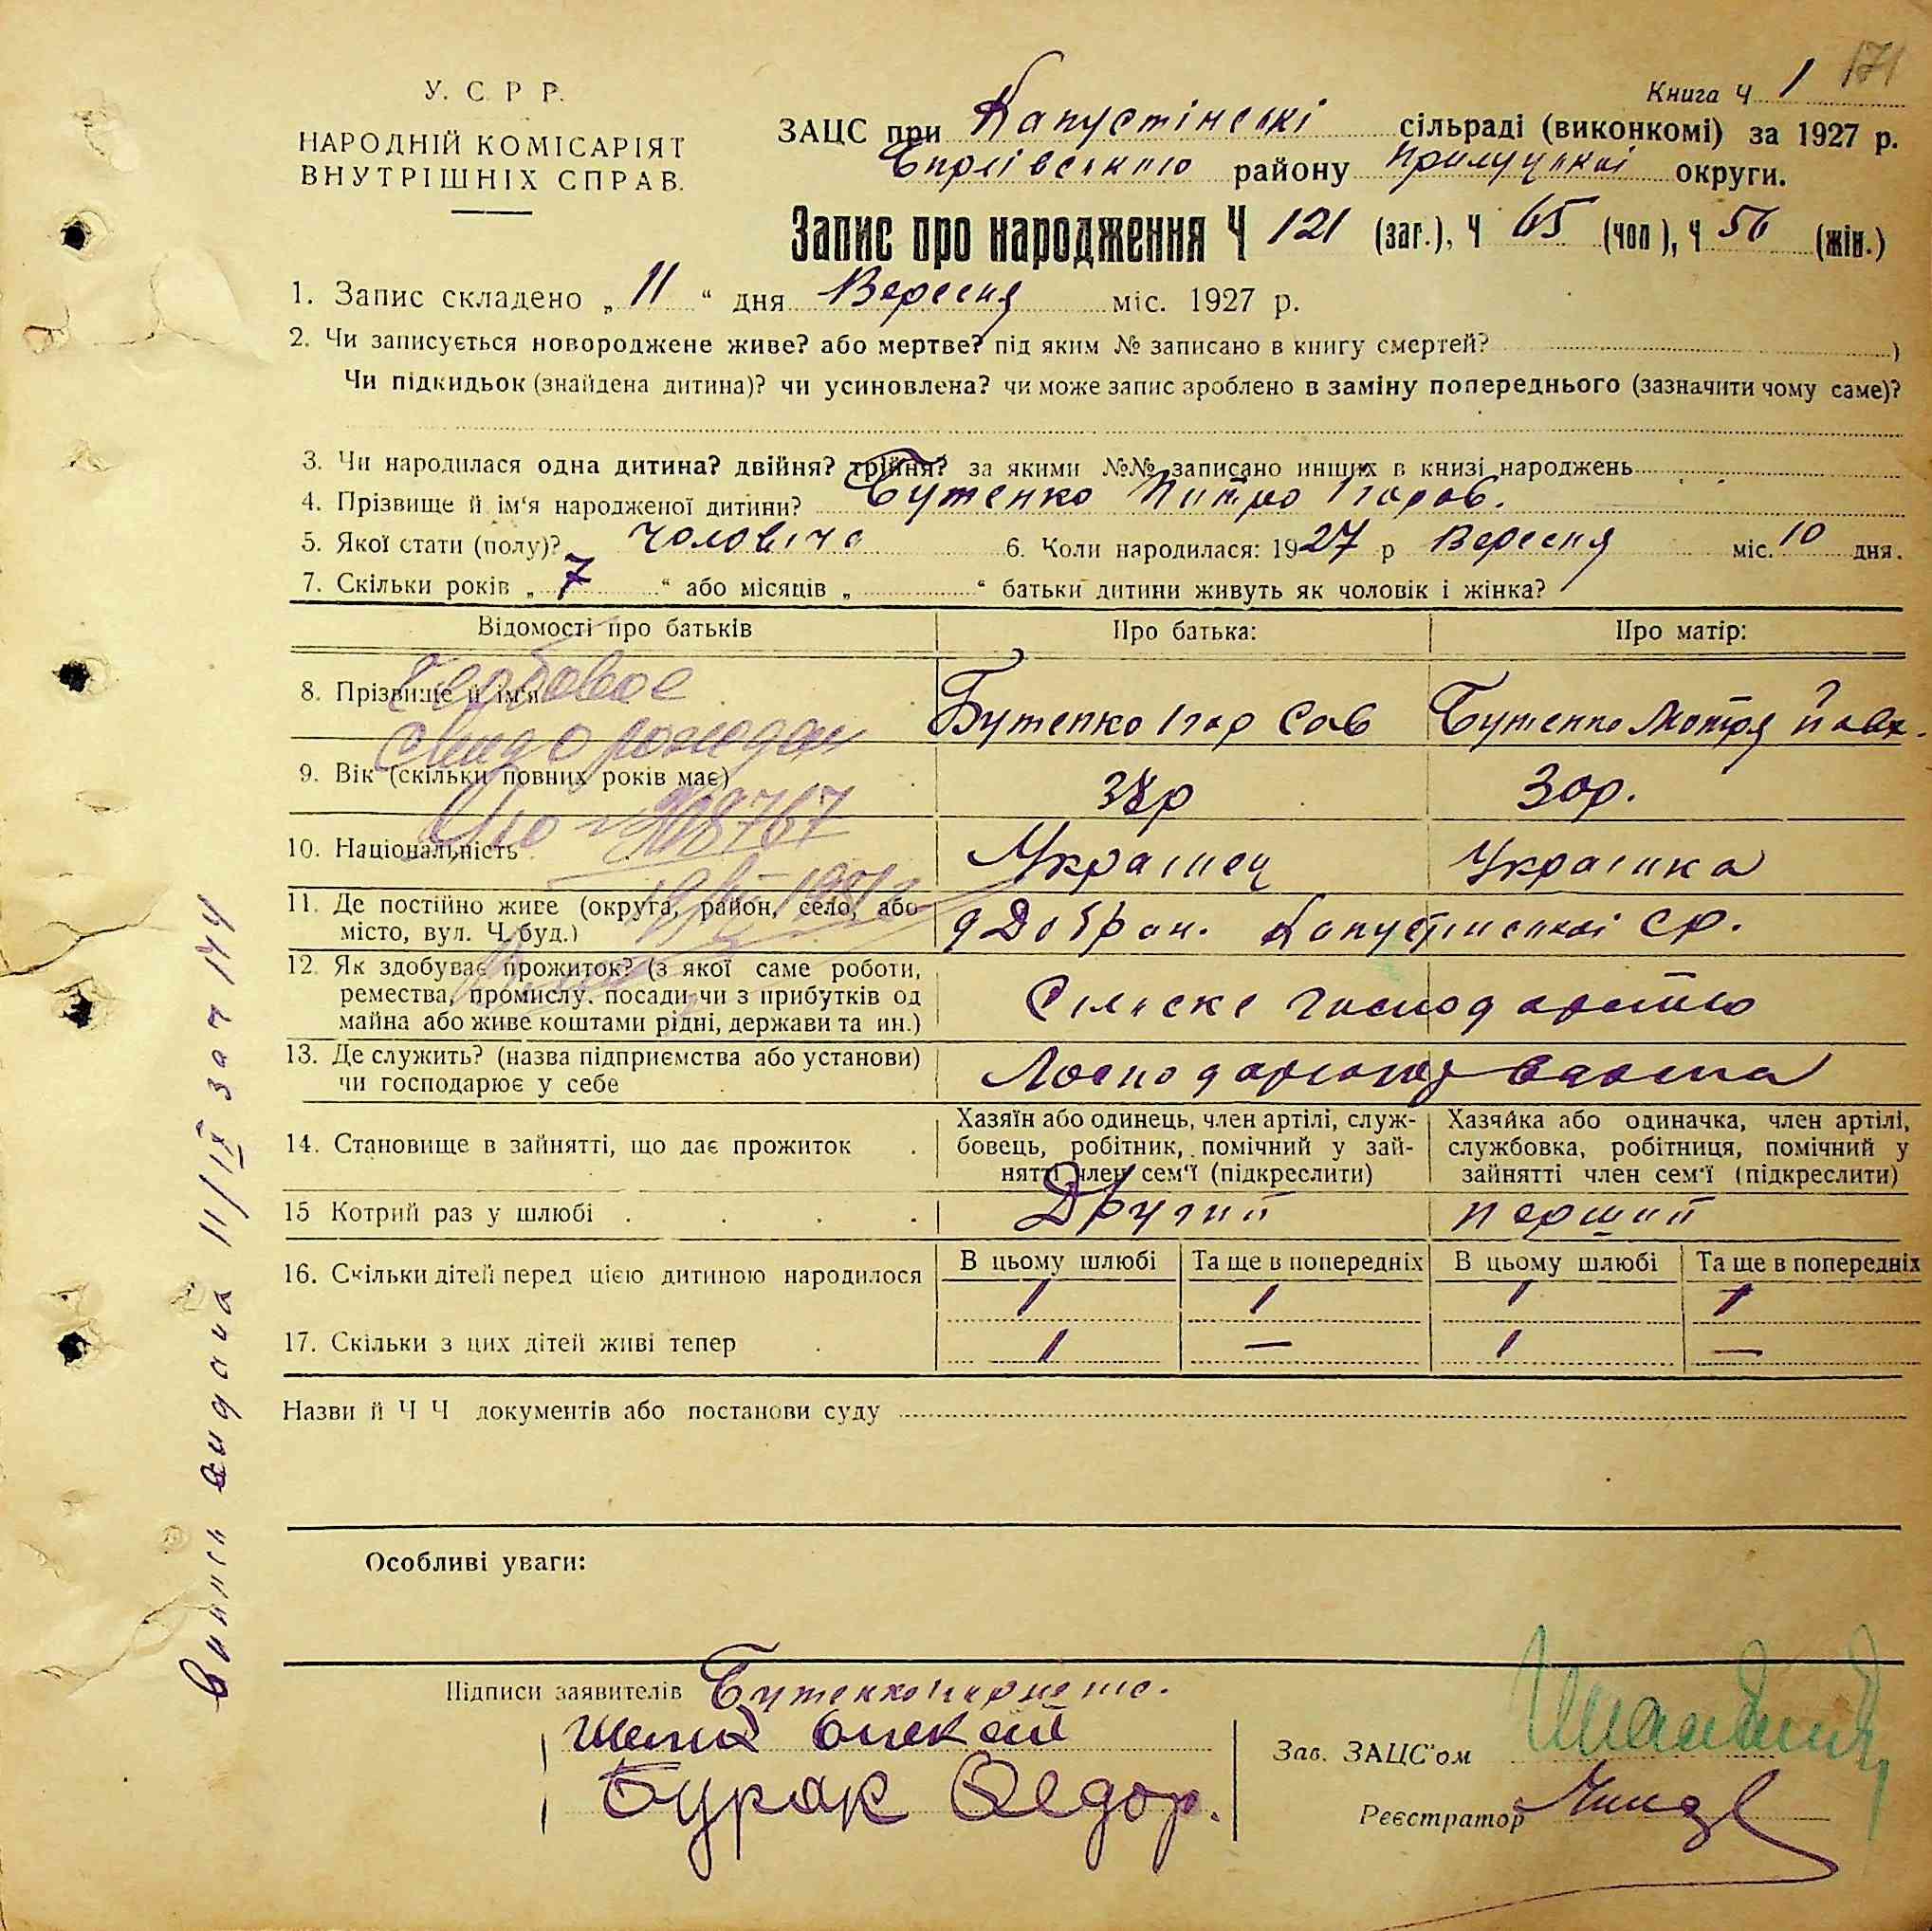 171
У. С. Р. Р.
НАРОДНІЙ КОМІСАРІЯТ
ВНУТРІШНІХ СПРАВ.
Книга Ч 1
ЗАЦС при Капустінські сільраді (виконкомі) за 1927 р.
району Прилуцкої округи.
Запис про народження Ч 121 (заг.), Ч 65 (чол), Ч 56 (жін.)
1. Запис складено „ 11 “ дня Вересня міс. 1927 р.
2. Чи записується новороджене живе? або мертве? під яким № записано в книгу смертей? )
Чи підкидьок (знайдена дитина)? чи усиновлена? чи може запис зроблено в заміну попереднього (зазначити чому саме)?
3. Чи народилася одна дитина? двійня? трійня? за якими №№ записано инших в книзі народжень
4. Прізвище й ім'я народженої дитини? Бутенко Питро Ігоров.
5. Якої стати (полу)? чоловіча 6. Коли народилася: 1927 р Вересня міс. 10 дня.
7. Скільки років „ 7 “ або місяців „ “ батьки дитини живуть як чоловік і жінка?
Відомості про батьків Про батька: Про матір:
8. Прізвище й ім'я Бутенко Ігор Сав Бутенко Мотря Павл.
9. Вік (скільки повних років має) 30р.
908767
10. Національність Украінец Украінка
11. Де постійно живе (округа, район, село, або місто, вул. Ч. буд.) Капустинскоі ср.
12. Як здобуває прожиток? (з якої саме роботи,
ремества, промислу, посади чи з прибутків од
майна або живе коштами рідні, держави та ин.) Сільске господарство
13. Де служить? (назва підприємства або установи)
чи господарює у себе
14. Становище в зайнятті, що дає прожиток .
Хазяїн або одинець, член артілі, служ-
бовець, робітник, помічний у зай-
нятті член сем'ї (підкреслити)
Хазяйка або одиначка, член артілі,
службовка, робітниця, помічний у
зайнятті член сем'ї (підкреслити)
15 Котрий раз у шлюбі . . . . Другий перший
16. Скільки дітей перед цією дитиною народилося
В цьому шлюбі Та ще в попередніх В цьому шлюбі Та ще в попередніх
1 1 1 1
17. Скільки з цих дітей живі тепер . 1 — 1 —
Назви й Ч Ч документів або постанови суду
Особливі уваги:
Підписи заявителів Бутенко
Бурак Федор.
Зав. ЗАЦС'ом
Реєстратор
Випись видана 11/IX за ч 144